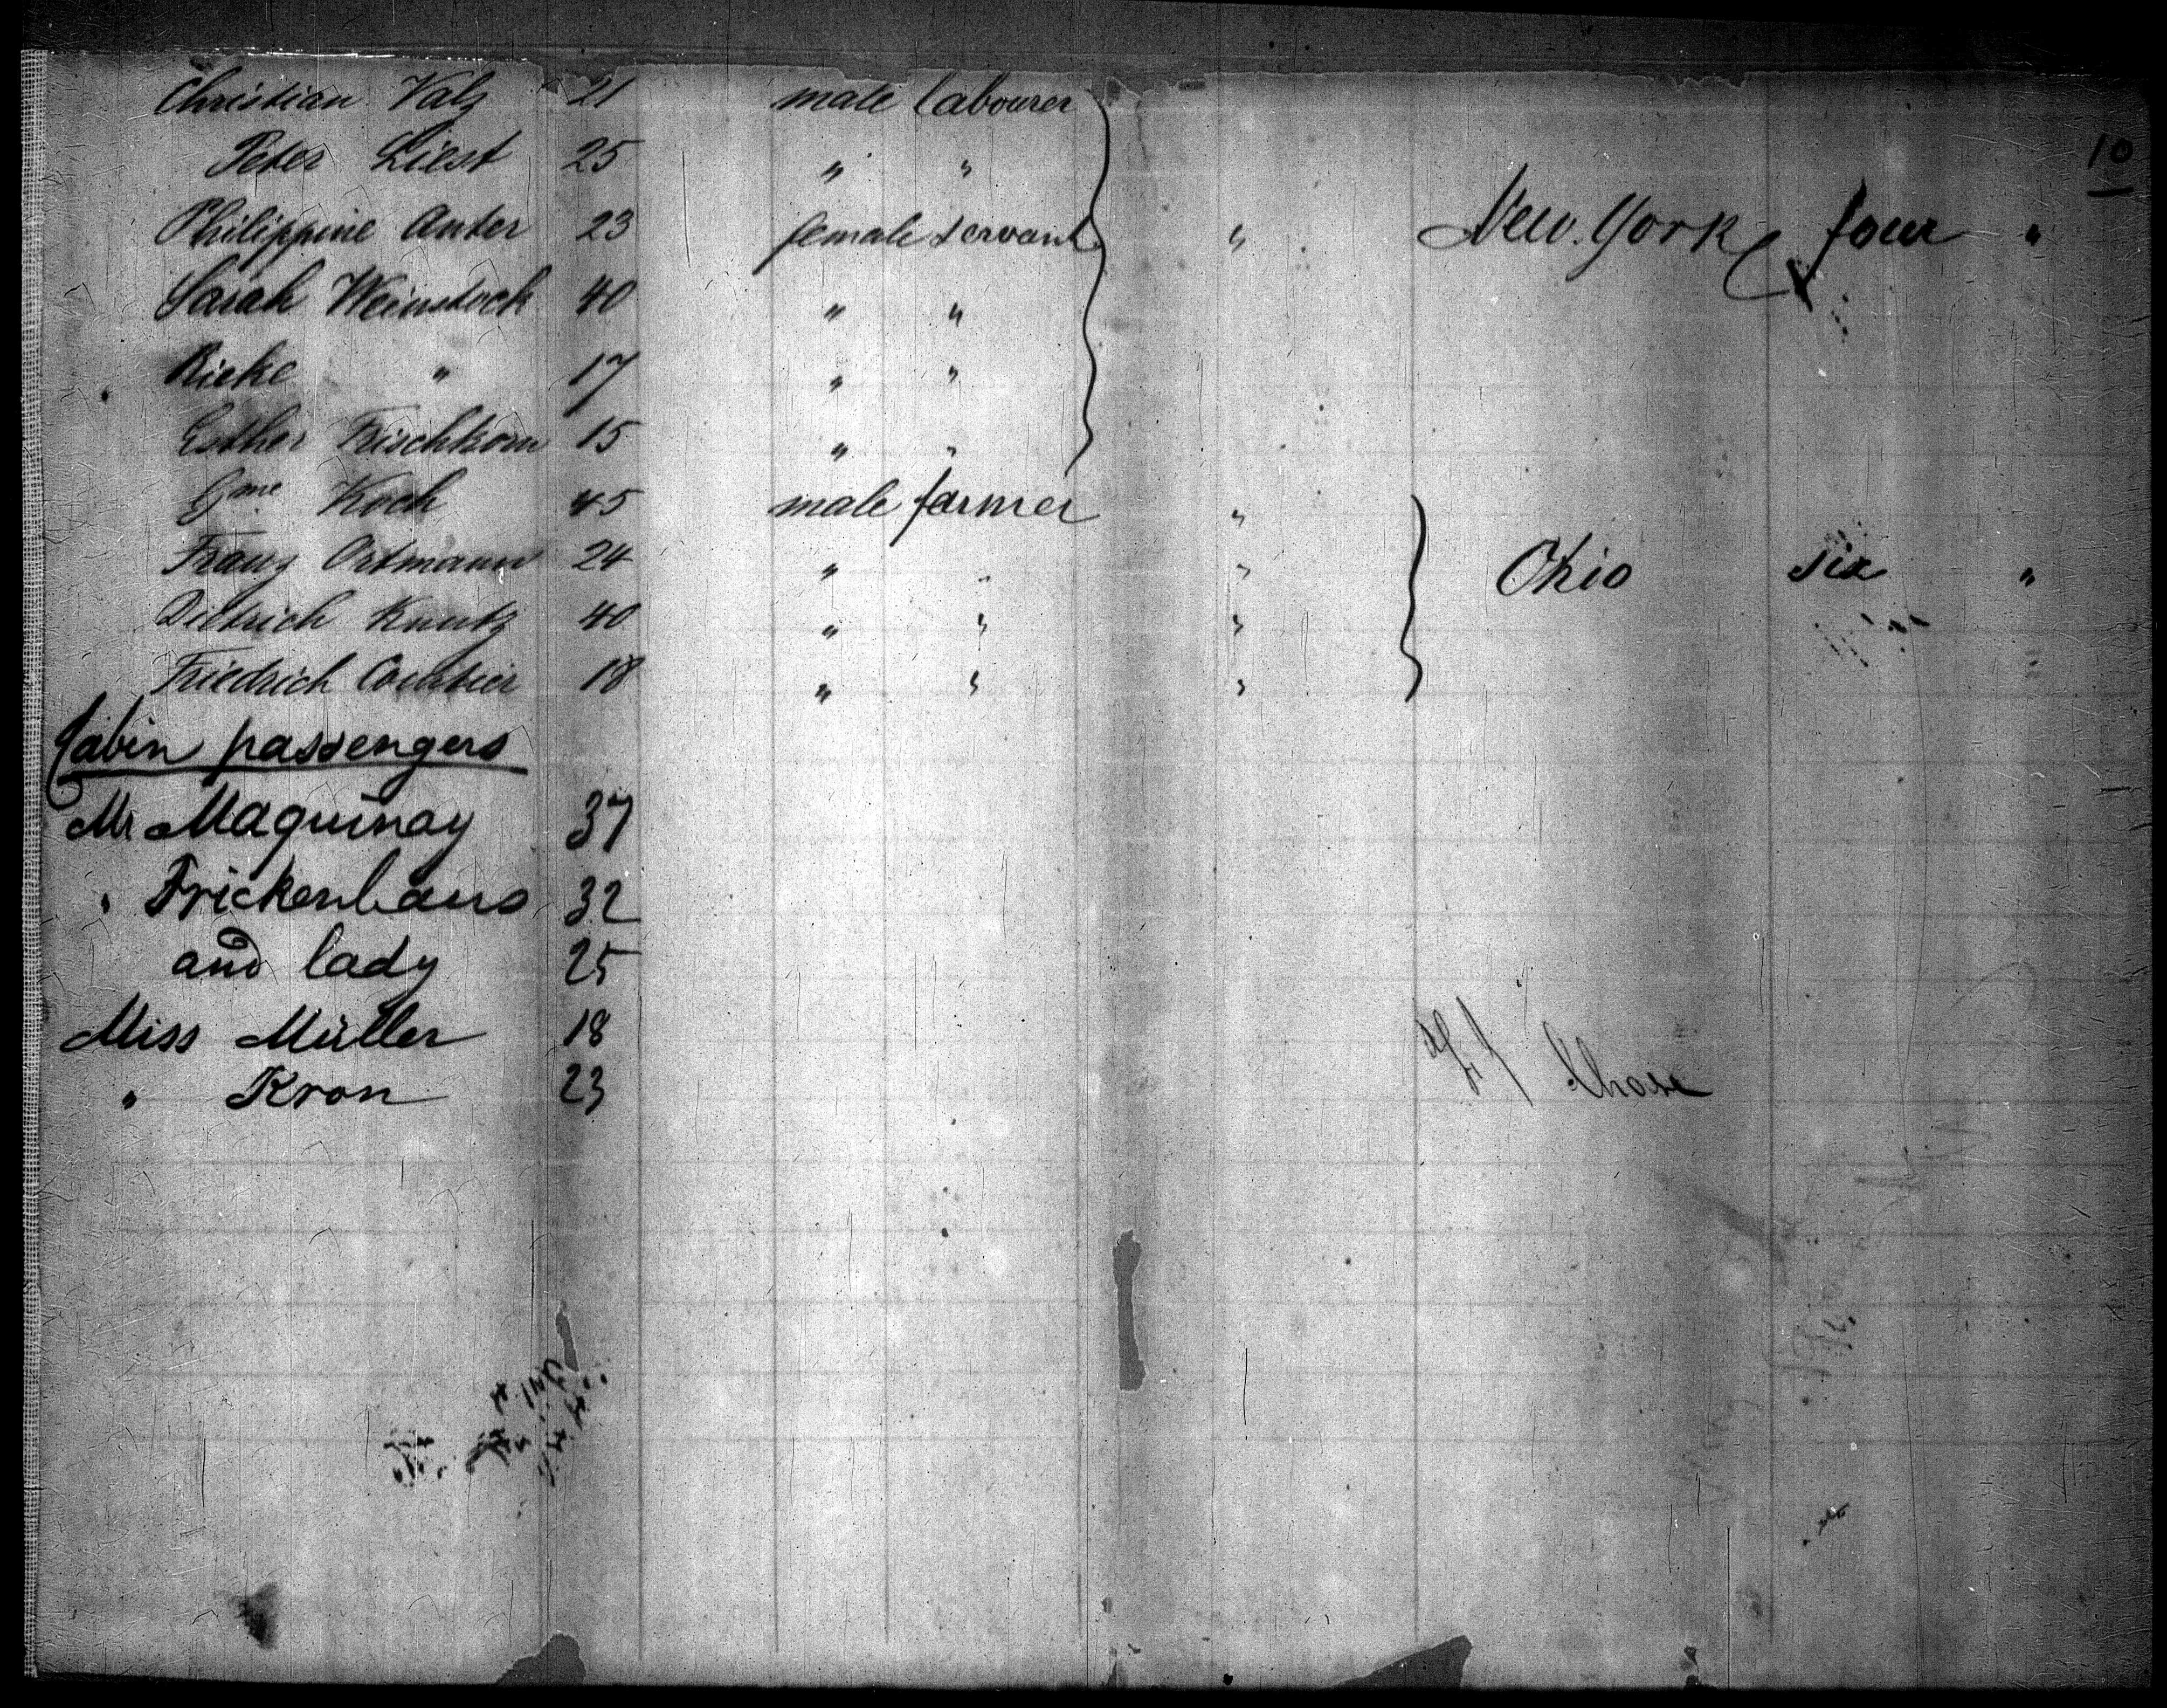 Christian Valz 21 male labourer
10
Peter Liest 25 " "
Philippine Anter 23 female servant " New. York four "
Sarah Weinstock 40 " "
Rieke " 17 " "
Esther Frischkorn 15 " "
Gme Koch 45 male farmer "
Franz Ortmann 24 " " " Ohio six "
Dietrich Kuntz 40 " " "
Friedrich 18 " " "
Cabin passengers
Mr Maquinay 37
" Frickenhaus 32
and lady 25
Miss Müller 18
" Kron 23
Chase